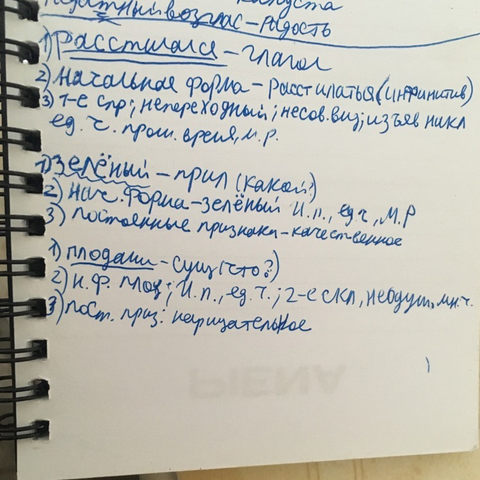 капуста
возглас – радость
1) Расстилался – глагол
2) Начальная форма – расстилаться (инфинитив)
3) 1-е спр; непереходный; несов.вид; изъяв накл
ед. ч. прош. время, м.р.
1) Зелёный – прил (какой?)
2) Нач. форма – зелёный И.п., ед ч, М.Р
3) постоянные признаки – качественное
1) плодами – сущ (что?)
2) Н.Ф. плод; И.п., ед.ч.; 2-е скл, неодуш, мн.ч.
3) пост. приз: нарицательное
PIENA